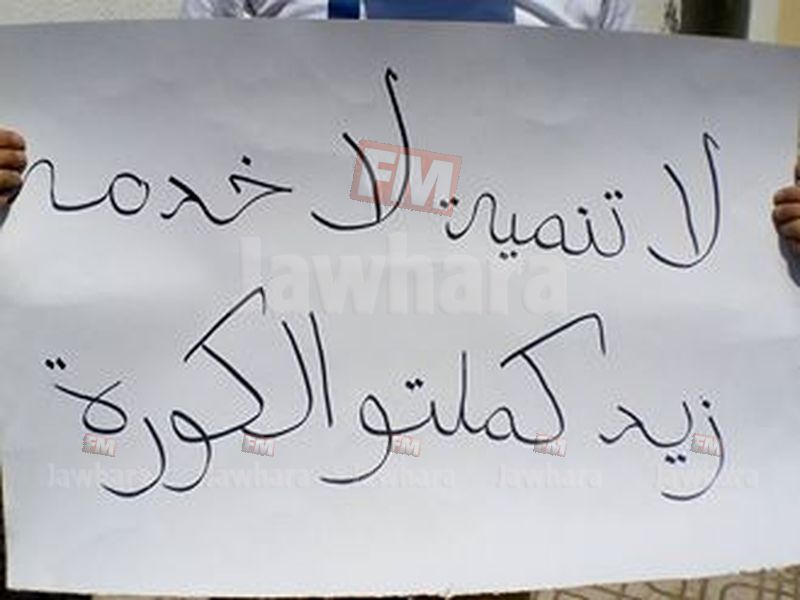 لا تنمية لا خدمه
زيد كملتو الكورة
FM
Jawhara
FM FM FM FM FM
Jawhara Jawhara Jawhara Jawhara Jawhara